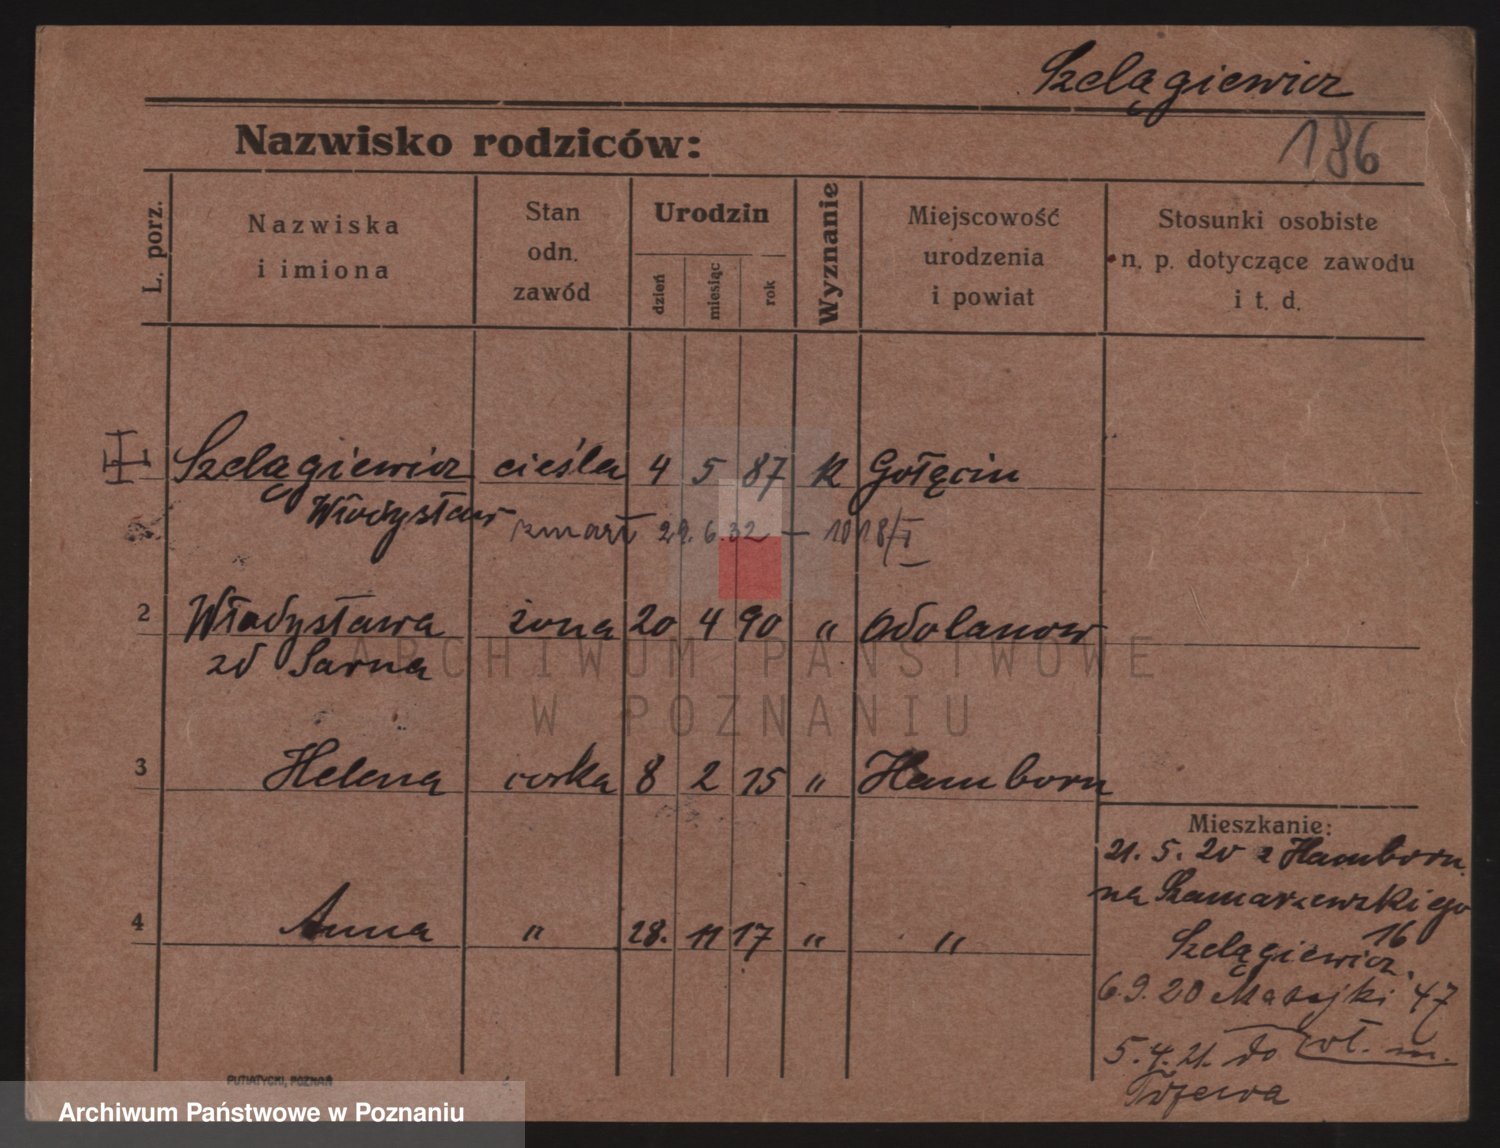 Szelągiewicz
186
Nazwisko rodziców:
L. porz.
Nazwiska
i imiona
Stan
odn.
zawód
Urodzin
dzień
miesiąc
rok
Wyznanie
Miejscowość
urodzenia
i powiat
Stosunki osobiste
n. p. dotyczące zawodu
i t. d.
1 Szelągiewicz cieśla 4 5 87 k Gołęcin
Władysław zmarł 29.6.32 — 1018/I
2 Władysława żona 20 4 90 " Odolanow
zd Sarna
3 Helena corka 8 2 15 " Hamborn
4 Anna " 28. 11 17 " "
Mieszkanie:
21. 5. 20 z Hamborn
na Szamarzewskiego
16
Szelągiewicz.
6.9.20 Matejki 47
5.4.21. do
PUTIATYCKI, POZNAŃ
ARCHIWUM PAŃSTWOWE
W POZNANIU
Archiwum Państwowe w Poznaniu